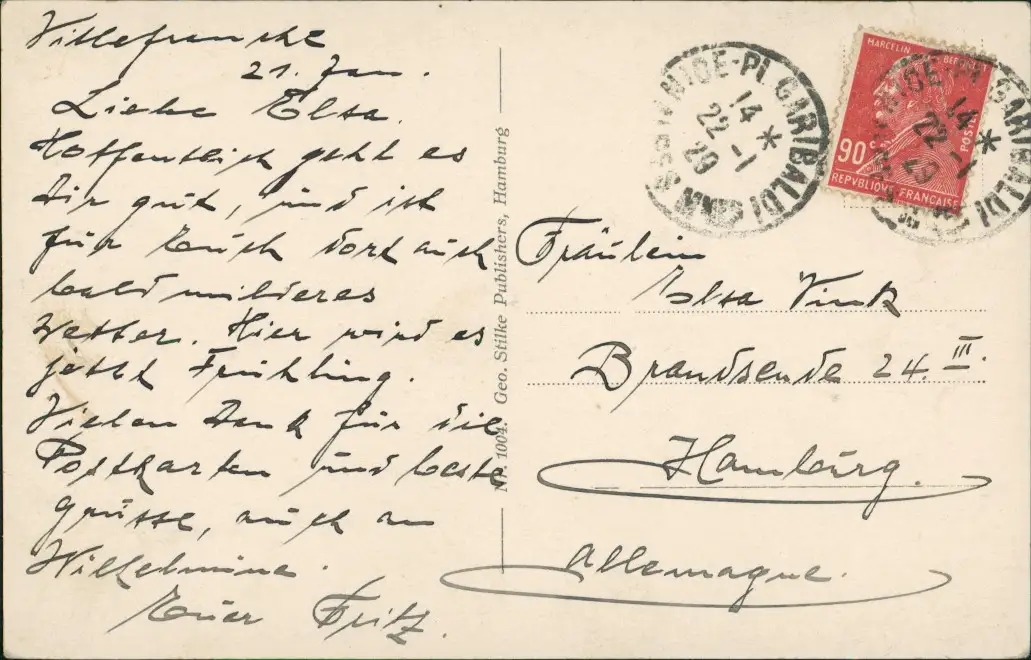 Villefranche
21. Jan.
Liebe Elsa.
Hoffentlich geht es
Dir gut, und ist
für Euch dort auch
bald milderes
Wetter. Hier wird es
jetzt Frühling.
Vielen Dank für die
Postkarten und beste
Grüsse, auch an
Wilhelmine.
Euer Fritz.
Nr. 1004. Geo. Stilke Publishers, Hamburg
NICE-PL GARIBALDI
14 *
22 -1
29
MARCELIN BERTHELOT
POSTES
90c
REPVBLIQVE FRANÇAISE
NICE-PL GARIBALDI
14 *
22 -1
29
Fräulein
Elsa Vink
Brandsende 24. III.
Hamburg.
Allemagne.